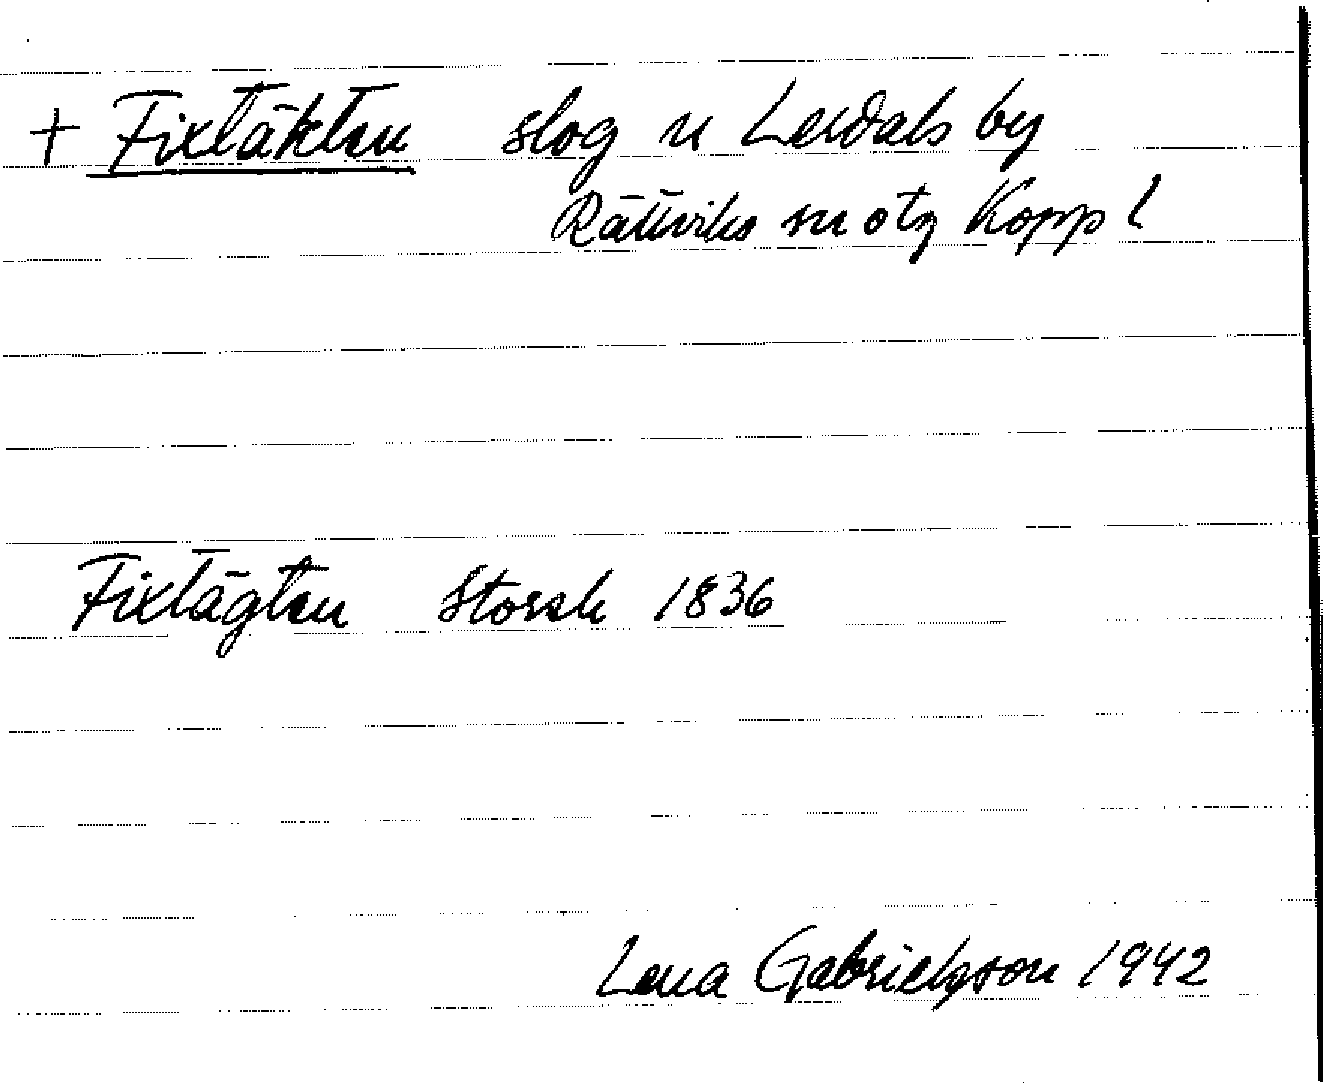 + Fixtäkten slog u Lerdals by
Rättviks sn o tg Kopp l
Fixtägten Storsk 1836
Lena Gabrielsson 1942